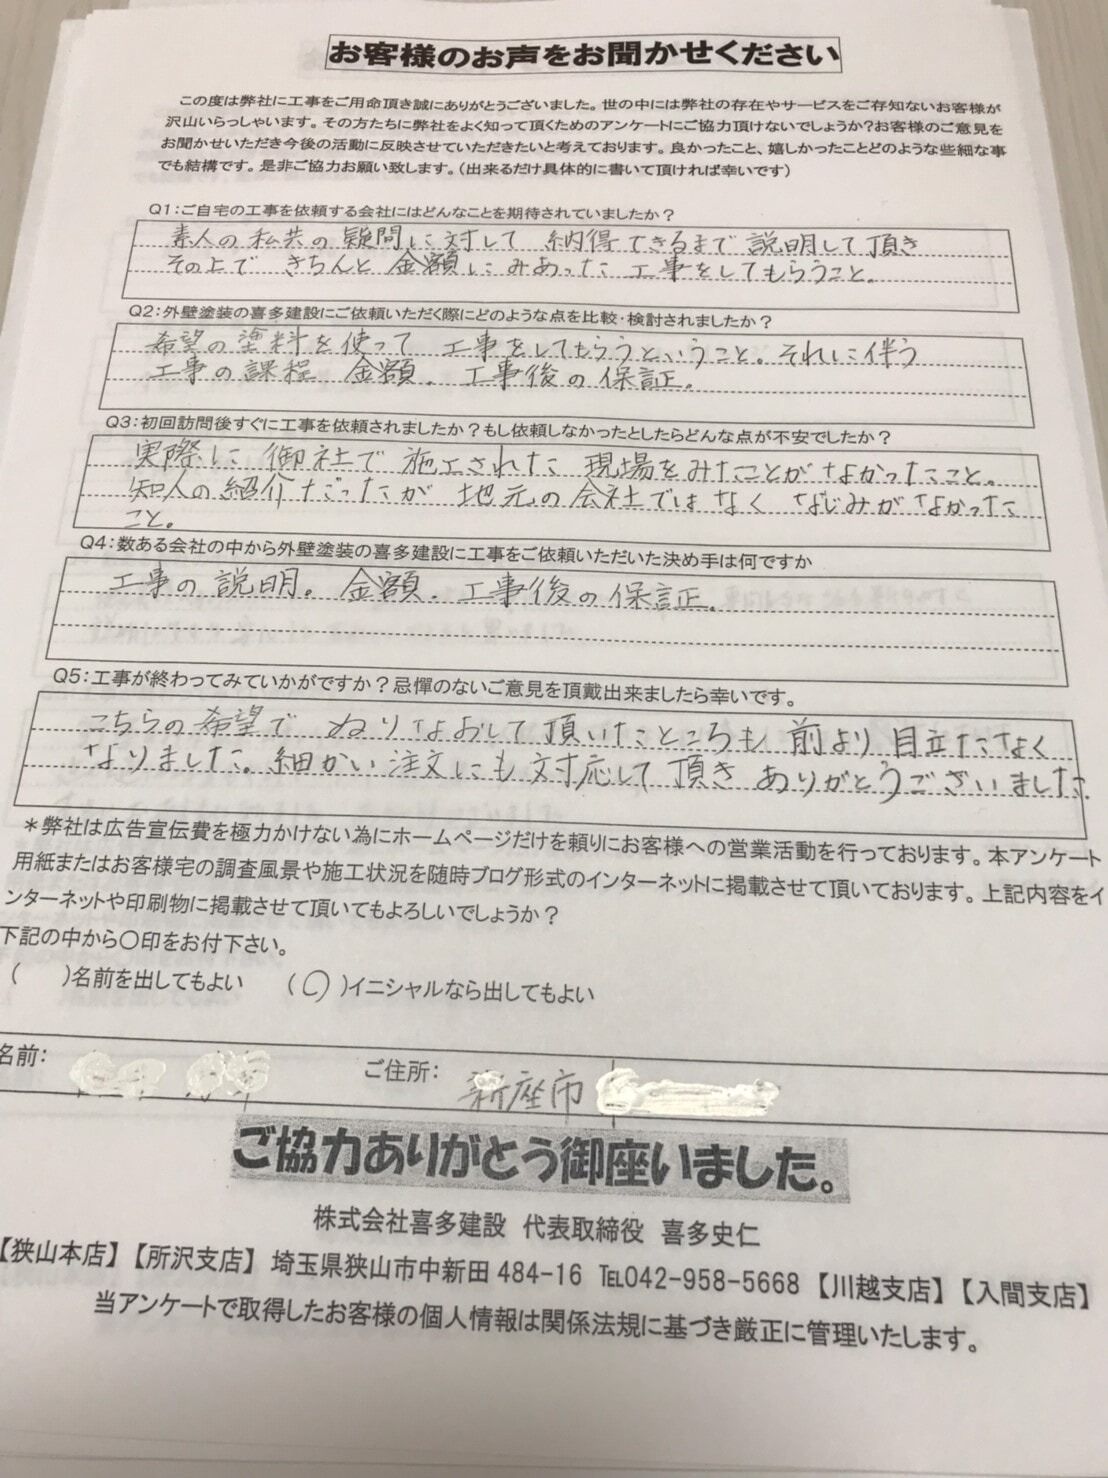 お客様のお声をお聞かせください
この度は弊社に工事をご用命頂き誠にありがとうございました。世の中には弊社の存在やサービスをご存知ないお客様が
沢山いらっしゃいます。その方たちに弊社をよく知って頂くためのアンケートにご協力頂けないでしょうか?お客様のご意見を
お聞かせいただき今後の活動に反映させていただきたいと考えております。良かったこと、嬉しかったことどのような些細な事
でも結構です。是非ご協力お願い致します。(出来るだけ具体的に書いて頂ければ幸いです)
Q1:ご自宅の工事を依頼する会社にはどんなことを期待されていましたか?
素人の私共の疑問に対して 納得できるまで説明して頂き
その上できちんと金額にみあった工事をしてもらうこと。
Q2:外壁塗装の喜多建設にご依頼いただく際にどのような点を比較・検討されましたか?
希望の塗料を使って 工事をしてもらうということ。それに伴う
工事の課程 金額、工事後の保証。
Q3:初回訪問後すぐに工事を依頼されましたか?もし依頼しなかったとしたらどんな点が不安でしたか?
実際に御社で施工された現場をみたことがなかったこと。
知人の紹介だったが地元の会社ではなくなじみがなかった
こと。
Q4:数ある会社の中から外壁塗装の喜多建設に工事をご依頼いただいた決め手は何ですか
工事の説明。金額、工事後の保証。
Q5:工事が終わってみていかがですか?忌憚のないご意見を頂戴出来ましたら幸いです。
こちらの希望でぬりなおして頂いたところも前より目立たなく
なりました。細かい注文にも対応して頂きありがとうございました。
*弊社は広告宣伝費を極力かけない為にホームページだけを頼りにお客様への営業活動を行っております。本アンケート
用紙またはお客様宅の調査風景や施工状況を随時ブログ形式のインターネットに掲載させて頂いております。上記内容をイ
ンターネットや印刷物に掲載させて頂いてもよろしいでしょうか?
下記の中から〇印をお付下さい。
( )名前を出してもよい (〇)イニシャルなら出してもよい
名前: ご住所: 新座市
ご協力ありがとう御座いました。
株式会社喜多建設 代表取締役 喜多史仁
【狭山本店】【所沢支店】埼玉県狭山市中新田484-16 ℡042-958-5668【川越支店】【入間支店】
当アンケートで取得したお客様の個人情報は関係法規に基づき厳正に管理いたします。